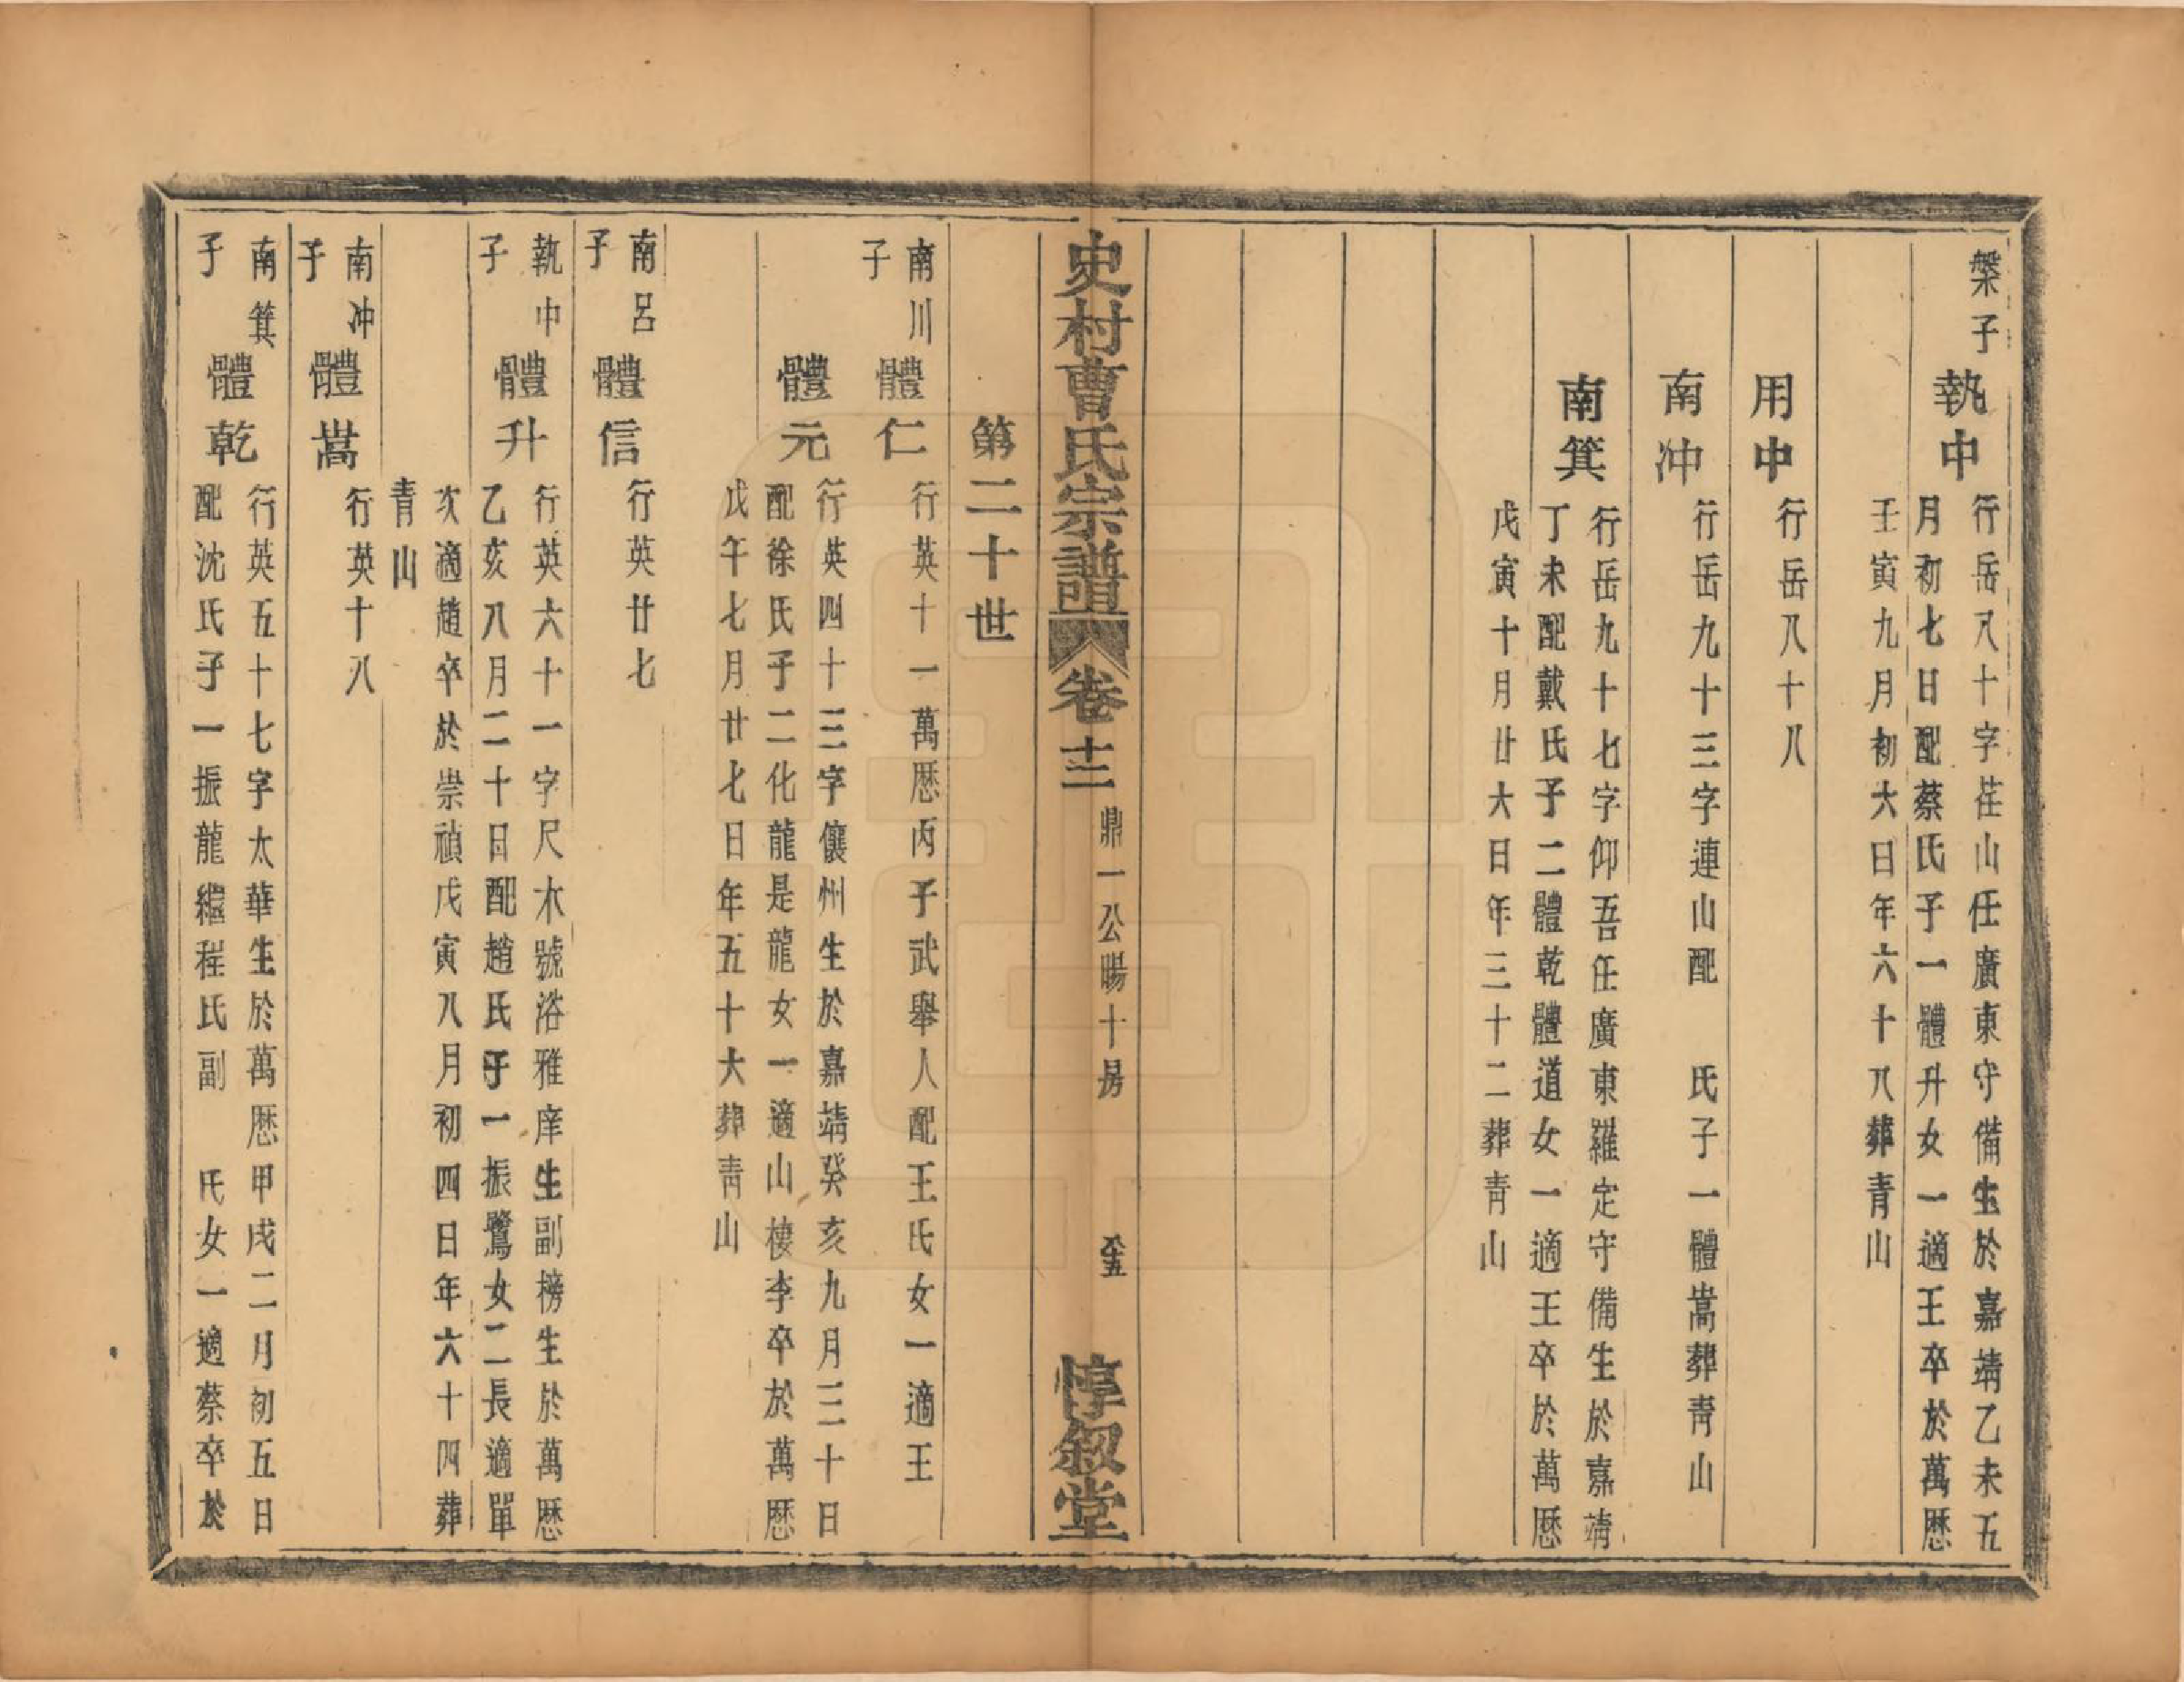 槃子
執中
行岳八十字荏山任廣東守備生於嘉靖乙未五
月初七日配蔡氏子一體升女一適王卒於萬歷
壬寅九月初六日年六十八葬青山
用中
行岳八十八
南冲
行岳九十三字連山配　氏子一體嵩葬青山
南箕
行岳九十七字仰吾任廣東羅定守備生於嘉靖
丁未配戴氏子二體乾體道女一適王卒於萬歷
戊寅十月廿六日年三十二葬青山
史村曹氏宗譜
卷十二
鼎一公暘十房
惇叙堂
第二十世
南川子
體仁
行英十一萬歷丙子武舉人配王氏女一適王
體元
行英四十三字儀州生於嘉靖癸亥九月三十日
配徐氏子二化龍是龍女一適山棲李卒於萬歷
戊午七月廿七日年五十六葬青山
南呂子
體信
行英廿七
執中子
體升
行英六十一字尺木號浴雅庠生副榜生於萬歷
乙亥八月二十日配趙氏子一振鷺女二長適單
次適趙卒於崇禎戊寅八月初四日年六十四葬
青山
南冲子
體嵩
行英十八
南箕子
體乾
行英五十七字太華生於萬歷甲戌二月初五日
配沈氏子一振龍繼程氏副　氏女一適蔡卒於